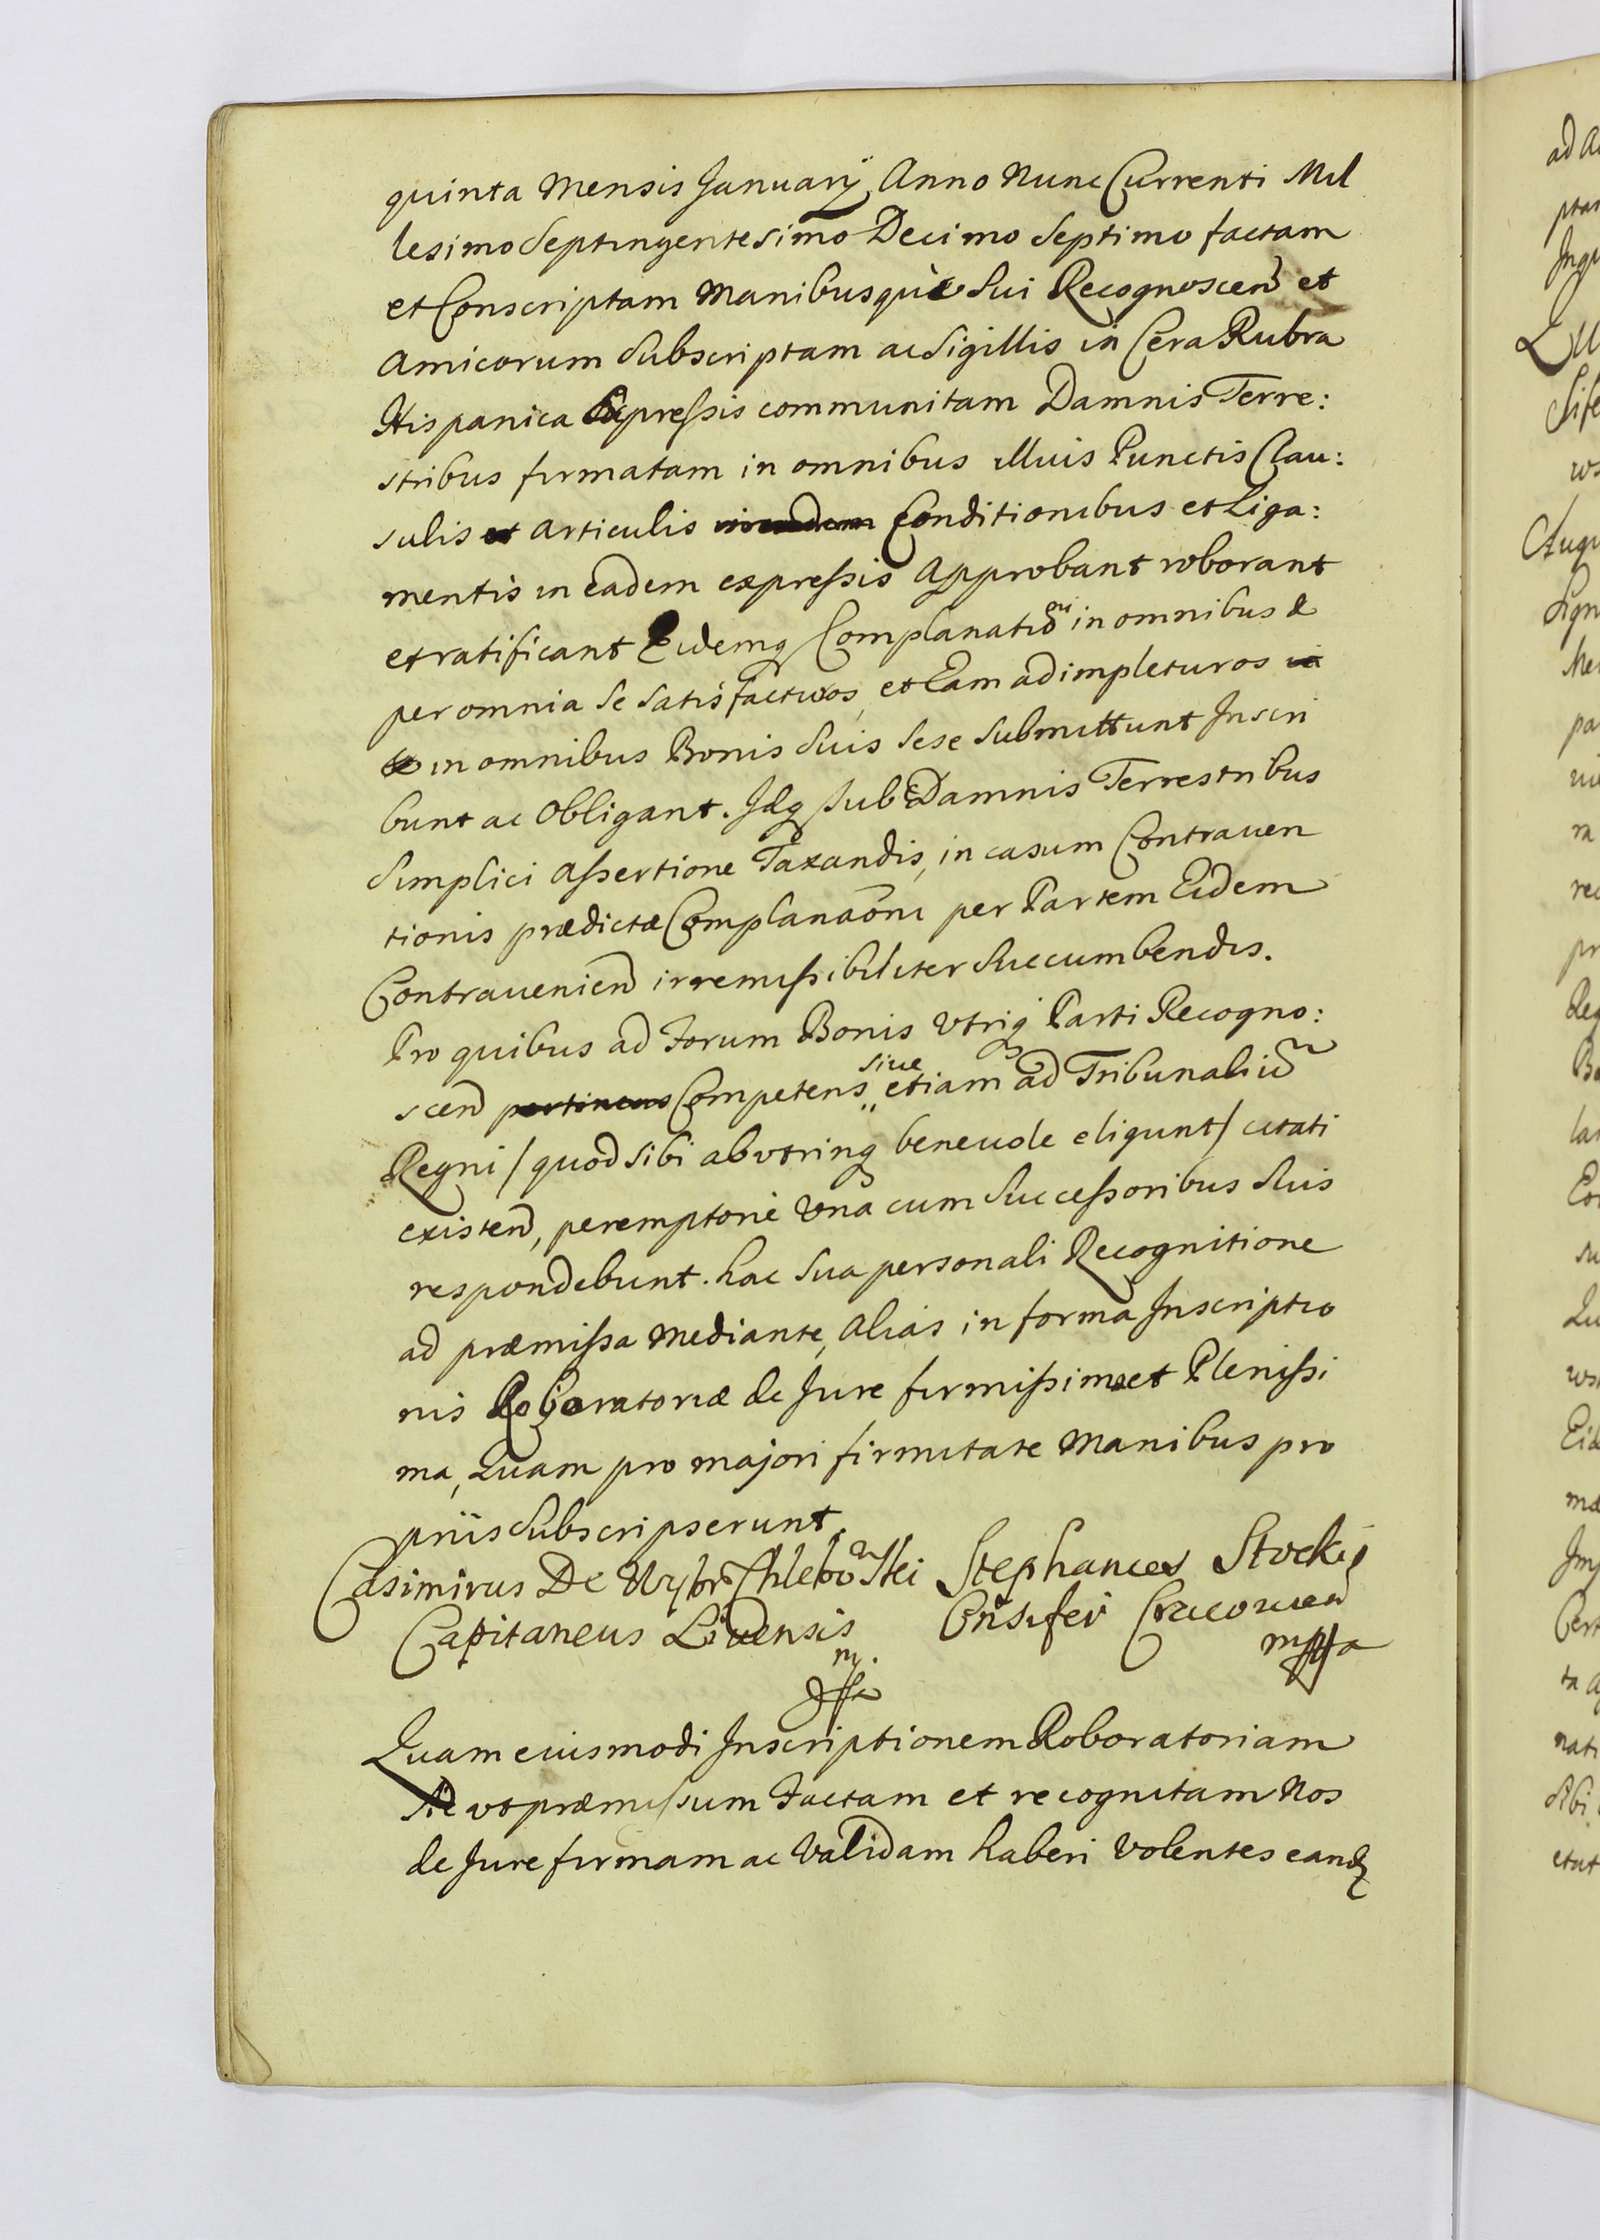 quinta Mensis Januarÿ Anno Nunc Currenti Mil
lesimo Septingentesimo Decimo Septimo factam
et Conscriptam Manibusque Sui Recognoscen et
Amicorum Subscriptam ac Sigillis in Cera Rubra
Hispanica Expressis communitam Damnis Terre:
stribus firmatam in omnibus illius Punctis Clau:
sulis et Articulis Conditionibus et Liga:
mentis in eadem expressis Approbant roborant
et ratificant Eidemq Complanationi in omnibus &
per omnia Se Satisfacturos, et Eam adimpleturos
in omnibus Bonis Suis Sese Submittunt Inscri
bunt ac Obligant. Idq sub Damnis Terrestribus
Simplici Assertione Taxandis, in casum Contrauen
tionis prædictæ Complanaõni per Partem Eidem
Contrauenien irremissibiliter Succumbendis.
Pro quibus ad Forum Bonis Vtriq Parti Recogno:
scen pertinens Competens siue etiam ad Tribunaliu
Regni / quod Sibi ab vtrinq beneuole eligunt / citati
existen, peremptorie Vna cum Successoribus Suis
respondebunt. hac Sua personali Recognitione
ad præmissa Mediante, Alias in forma Inscriptio
nis Roboratoriæ de Jure firmissima et Plenissi
ma, Quam pro majori firmitate Manibus pro
priis Subscripserunt.
Casimirus De Wybr Chlebowski Stephanus Stocki
Capitaneus Livensis Ensifer Cracouien
mp mppa
Quam eiusmodi Inscriptionem Roboratoriam
Sic vt præmissum Factam et recognitam Nos
de Jure firmam ac Validam haberi Volentes eand